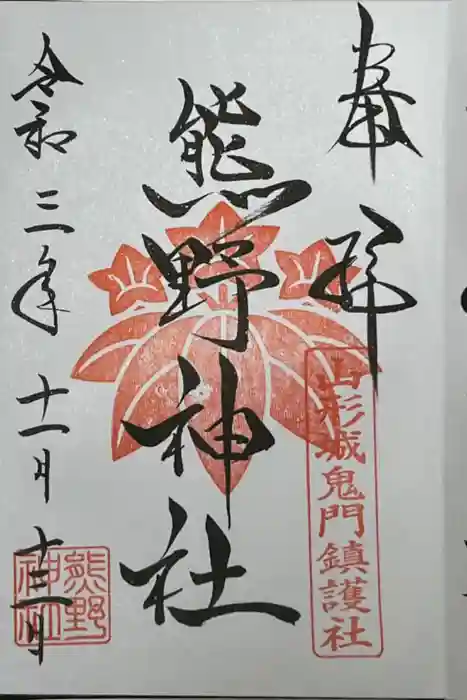 奉拝
山形城鬼門鎮護社
熊野神社
令和三年十一月
熊野神社